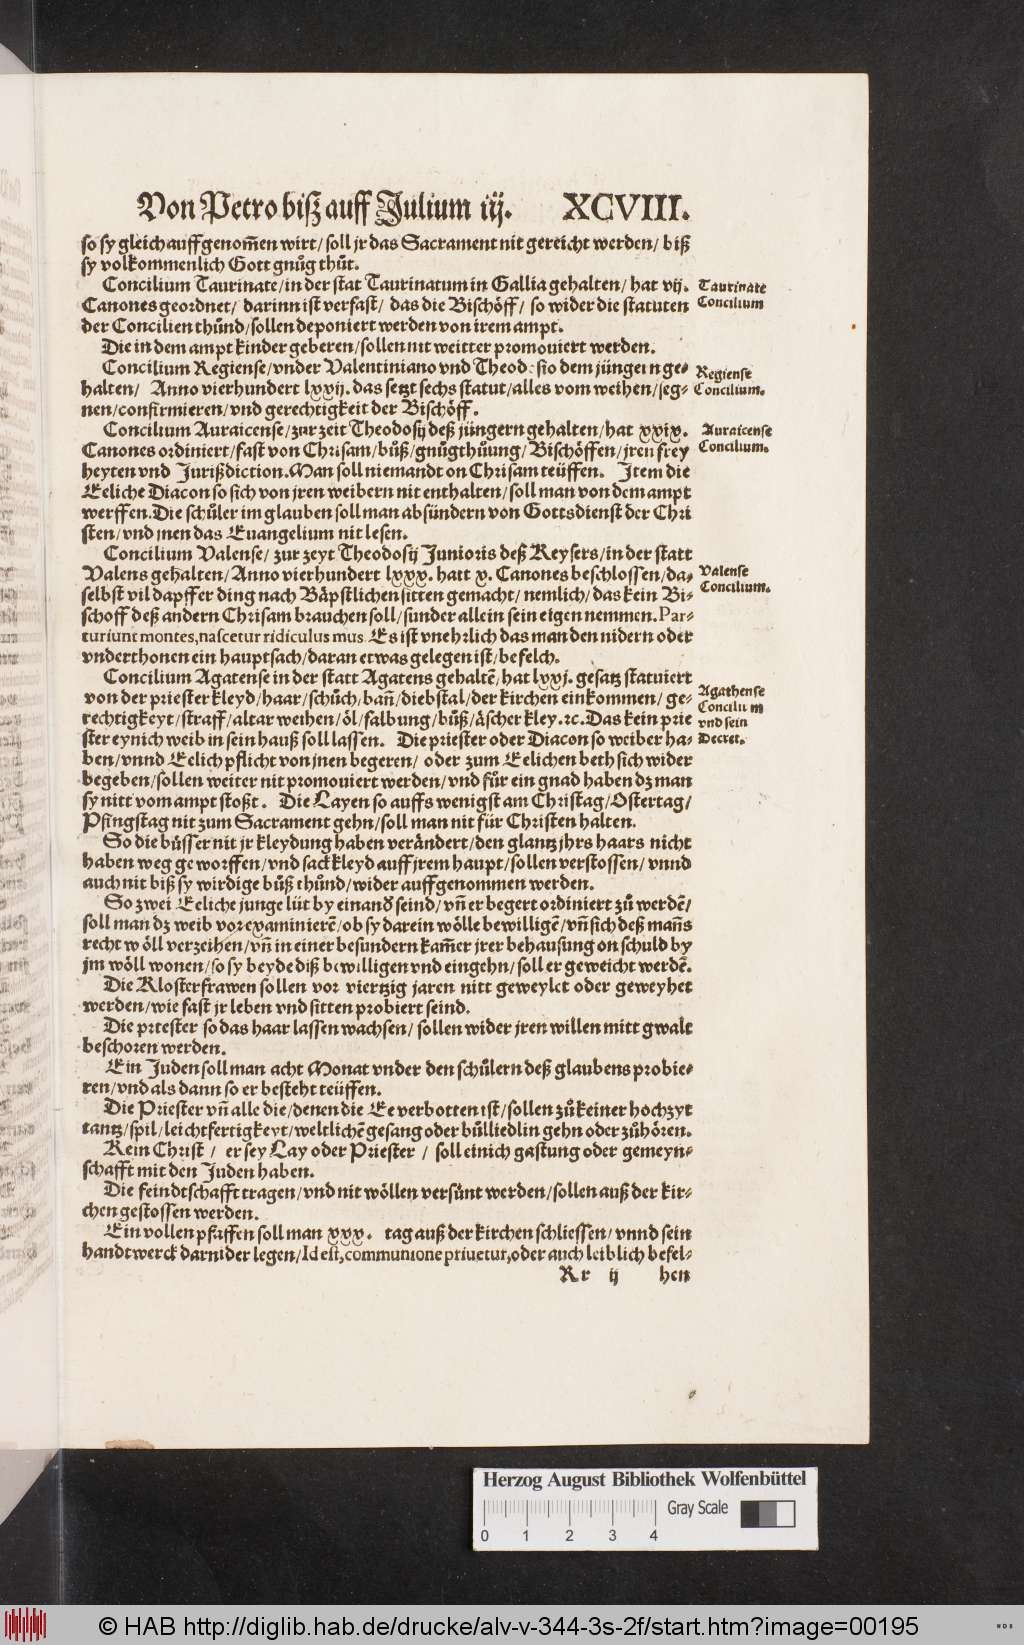 Von Petro biß auff Julium iij. XCVIII.
so sy gleich auffgenom̃en wirt/ soll jr das Sacrament nit gereicht werden/ biß
sy volkommenlich Gott gnůg thůt.
Concilium Taurinate/ in der stat Taurinatum in Gallia gehalten/ hat vij.
Canones geordnet/ darinn ist verfast/ das die Bischöff/ so wider die statuten
der Concilien thůnd/ sollen deponiert werden von irem ampt.
Taurinate
Concilium
Die in dem ampt kinder geberen/ sollen nit weitter promouiert werden.
Concilium Regiense/ vnder Valentiniano vnd Theodosio dem jüngern ge-
halten/ Anno vierhundert lxxij. das setzt sechs statut/ alles vom weihen/ seg-
nen/ confirmieren/ vnd gerechtigkeit der Bischöff.
Regiense
Concilium.
Concilium Auraicense/ zur zeit Theodosij deß jüngern gehalten/ hat xxix.
Canones ordiniert/ fast von Chrisam/ bůß/ gnůgthůung/ Bischöffen/ jren frey
heyten vnd Jurißdiction. Man soll niemandt on Chrisam teüffen. Item die
Eeliche Diacon so sich von jren weibern nit enthalten/ soll man von dem ampt
werffen. Die schůler im glauben soll man absündern von Gottsdienst der Chri
sten/ vnd jnen das Euangelium nit lesen.
Auraicense
Concilium.
Concilium Valense/ zur zeyt Theodosij Junioris deß Keysers/ in der statt
Valens gehalten/ Anno vierhundert lxxx. hatt x. Canones beschlossen/ da-
selbst vil dapffer ding nach Bäpstlichen sitten gemacht/ nemlich/ das kein Bi-
schoff deß andern Chrisam brauchen soll/ sunder allein sein eigen nemmen. Par-
turiunt montes, nascetur ridiculus mus. Es ist vnehrlich das man den nidern oder
vnderthonen ein hauptsach/ daran etwas gelegen ist/ befelch.
Valense
Concilium.
Concilium Agatense in der statt Agatens gehaltẽ/ hat lxxj. gesatz statuiert
von der priester kleyd/ haar/ schůch/ bañ/ diebstal/ der kirchen einkommen/ ge-
rechtigkeyt/ straff/ altar weihen/ öl/ salbung/ bůß/ äscher kley. ꝛc. Das kein prie
ster eynich weib in sein hauß soll lassen. Die priester oder Diacon so weiber ha-
ben/ vnnd Eelich pflicht von jnen begeren/ oder zum Eelichen beth sich wider
begeben/ sollen weiter nit promouiert werden/ vnd für ein gnad haben dz man
sy nitt vom ampt stoßt. Die Layen so auffs wenigst am Christag/ Ostertag/
Pfingstag nit zum Sacrament gehn/ soll man nit für Christen halten.
Agathense
Concilium
vnd sein
Decret.
So die büsser nit jr kleydung haben verändert/ den glantz jhrs haars nicht
haben weg geworffen/ vnd sackkleyd auff jrem haupt/ sollen verstossen/ vnnd
auch nit biß sy wirdige bůß thůnd/ wider auffgenommen werden.
So zwei Eeliche junge lüt by einand̃ seind/ vñ er begert ordiniert zů werdẽ/
soll man dz weib vor examinierẽ/ ob sy darein wölle bewilligẽ/ vñ sich deß mañs
recht wöll verzeihen/ vñ in einer besundern kam̃er jrer behausung on schuld by
jm wöll wonen/ so sy beyde diß bewilligen vnd eingehn/ soll er geweicht werdẽ.
Die Klosterfrawen sollen vor viertzig jaren nitt geweylet oder geweyhet
werden/ wie fast jr leben vnd sitten probiert seind.
Die priester so das haar lassen wachsen/ sollen wider jren willen mitt gwalt
beschoren werden.
Ein Juden soll man acht Monat vnder den schůlern deß glaubens probie-
ren/ vnd als dann so er besteht teüffen.
Die Priester vñ alle die/ denen die Ee verbotten ist/ sollen zů keiner hochzyt
tantz/ spil/ leichtfertigkeyt/ weltlichẽ gesang oder bůlliedlin gehn oder zůhören.
Kein Christ/ er sey Lay oder Priester/ soll einich gastung oder gemeyn-
schafft mit den Juden haben.
Die feindtschafft tragen/ vnd nit wöllen versünt werden/ sollen auß der kir-
chen gestossen werden.
Ein vollen pfaffen soll man xxx. tag auß der kirchen schliessen/ vnnd sein
handtwerck darnider legen/ Id est, communione priuetur, oder auch leiblich befel-
Rr ij hen
Herzog August Bibliothek Wolfenbüttel
Gray Scale
0 1 2 3 4
© HAB http://diglib.hab.de/drucke/alv-v-344-3s-2f/start.htm?image=00195